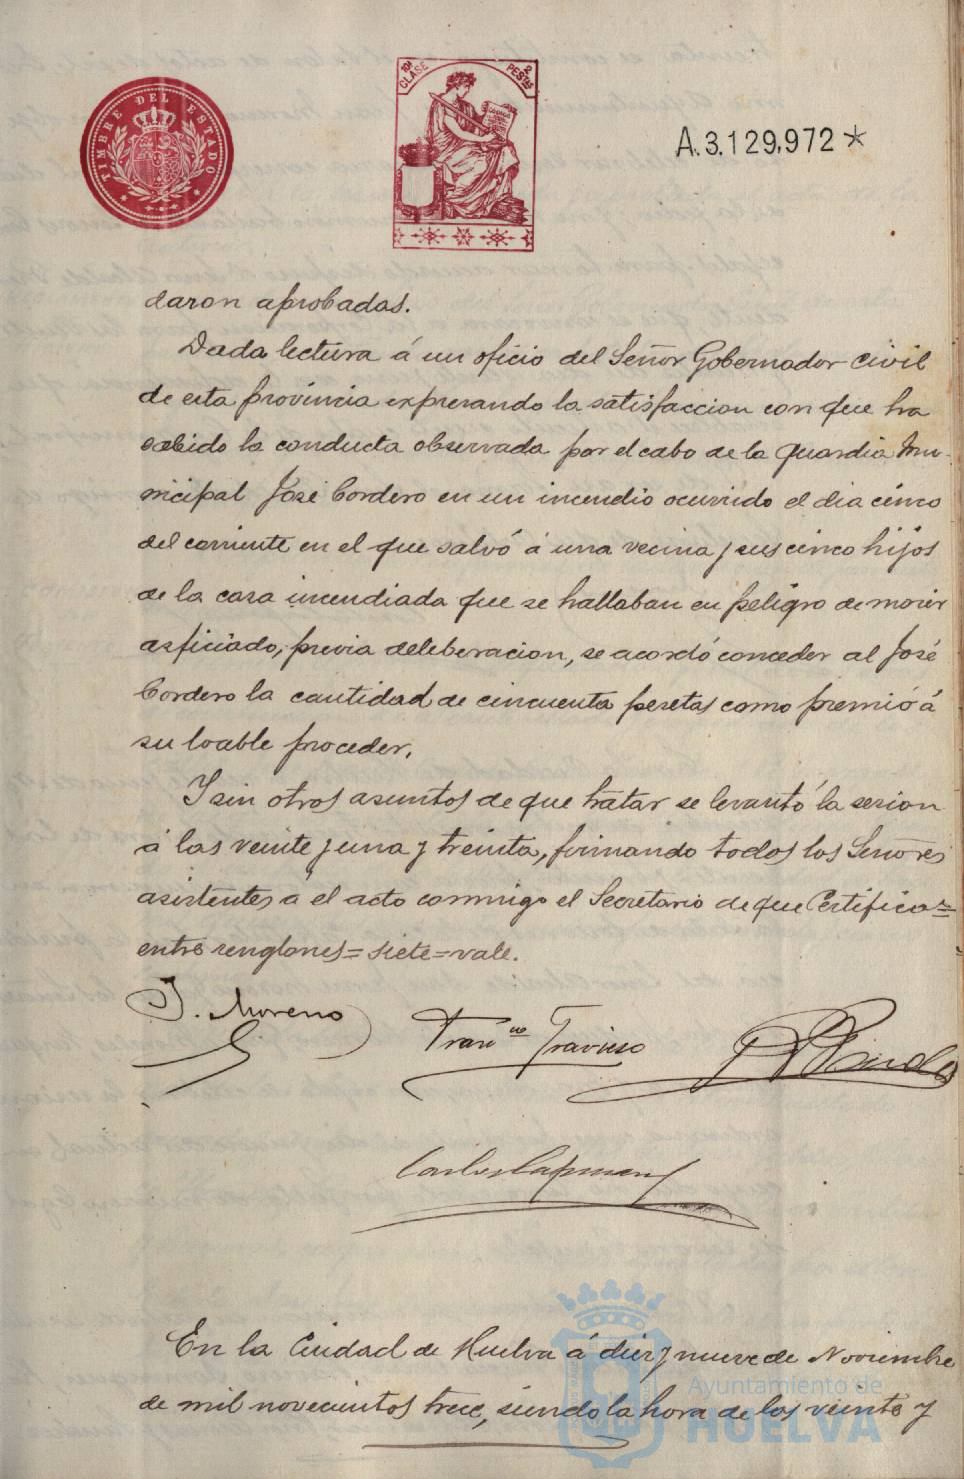 TIMBRE DEL ESTADO
10ª CLASE
2 PESTAS
A.3.129,972*
daron aprobadas.
Dada lectura á un oficio del Señor Gobernador civil
de esta provincia expresando la satisfaccion con que ha
sabido la conducta observada por el cabo de la guardia Mu-
nicipal José Cordero en un incendio ocurrido el dia cinco
del corriente en el que salvó á una vecina y sus cinco hijos
de la casa incendiada que se hallaban en peligro de morir
asficiado, previa deleberacion, se acordó conceder al José
Cordero la cantidad de cincuenta pesetas como premió á
su loable proceder.
Y sin otros asuntos de que tratar se levantó la sesion
á las veinte y una y treinta, firmando todos los Señores
asistentes á el acto conmigo el Secretario de que Certifico=
entre renglones=siete=vale.
J. Moreno
En la Ciudad de Huelva á diez y nueve de Noviembre
de mil novecientos trece, siendo la hora de las veinte y
Ayuntamiento de
HUELVA